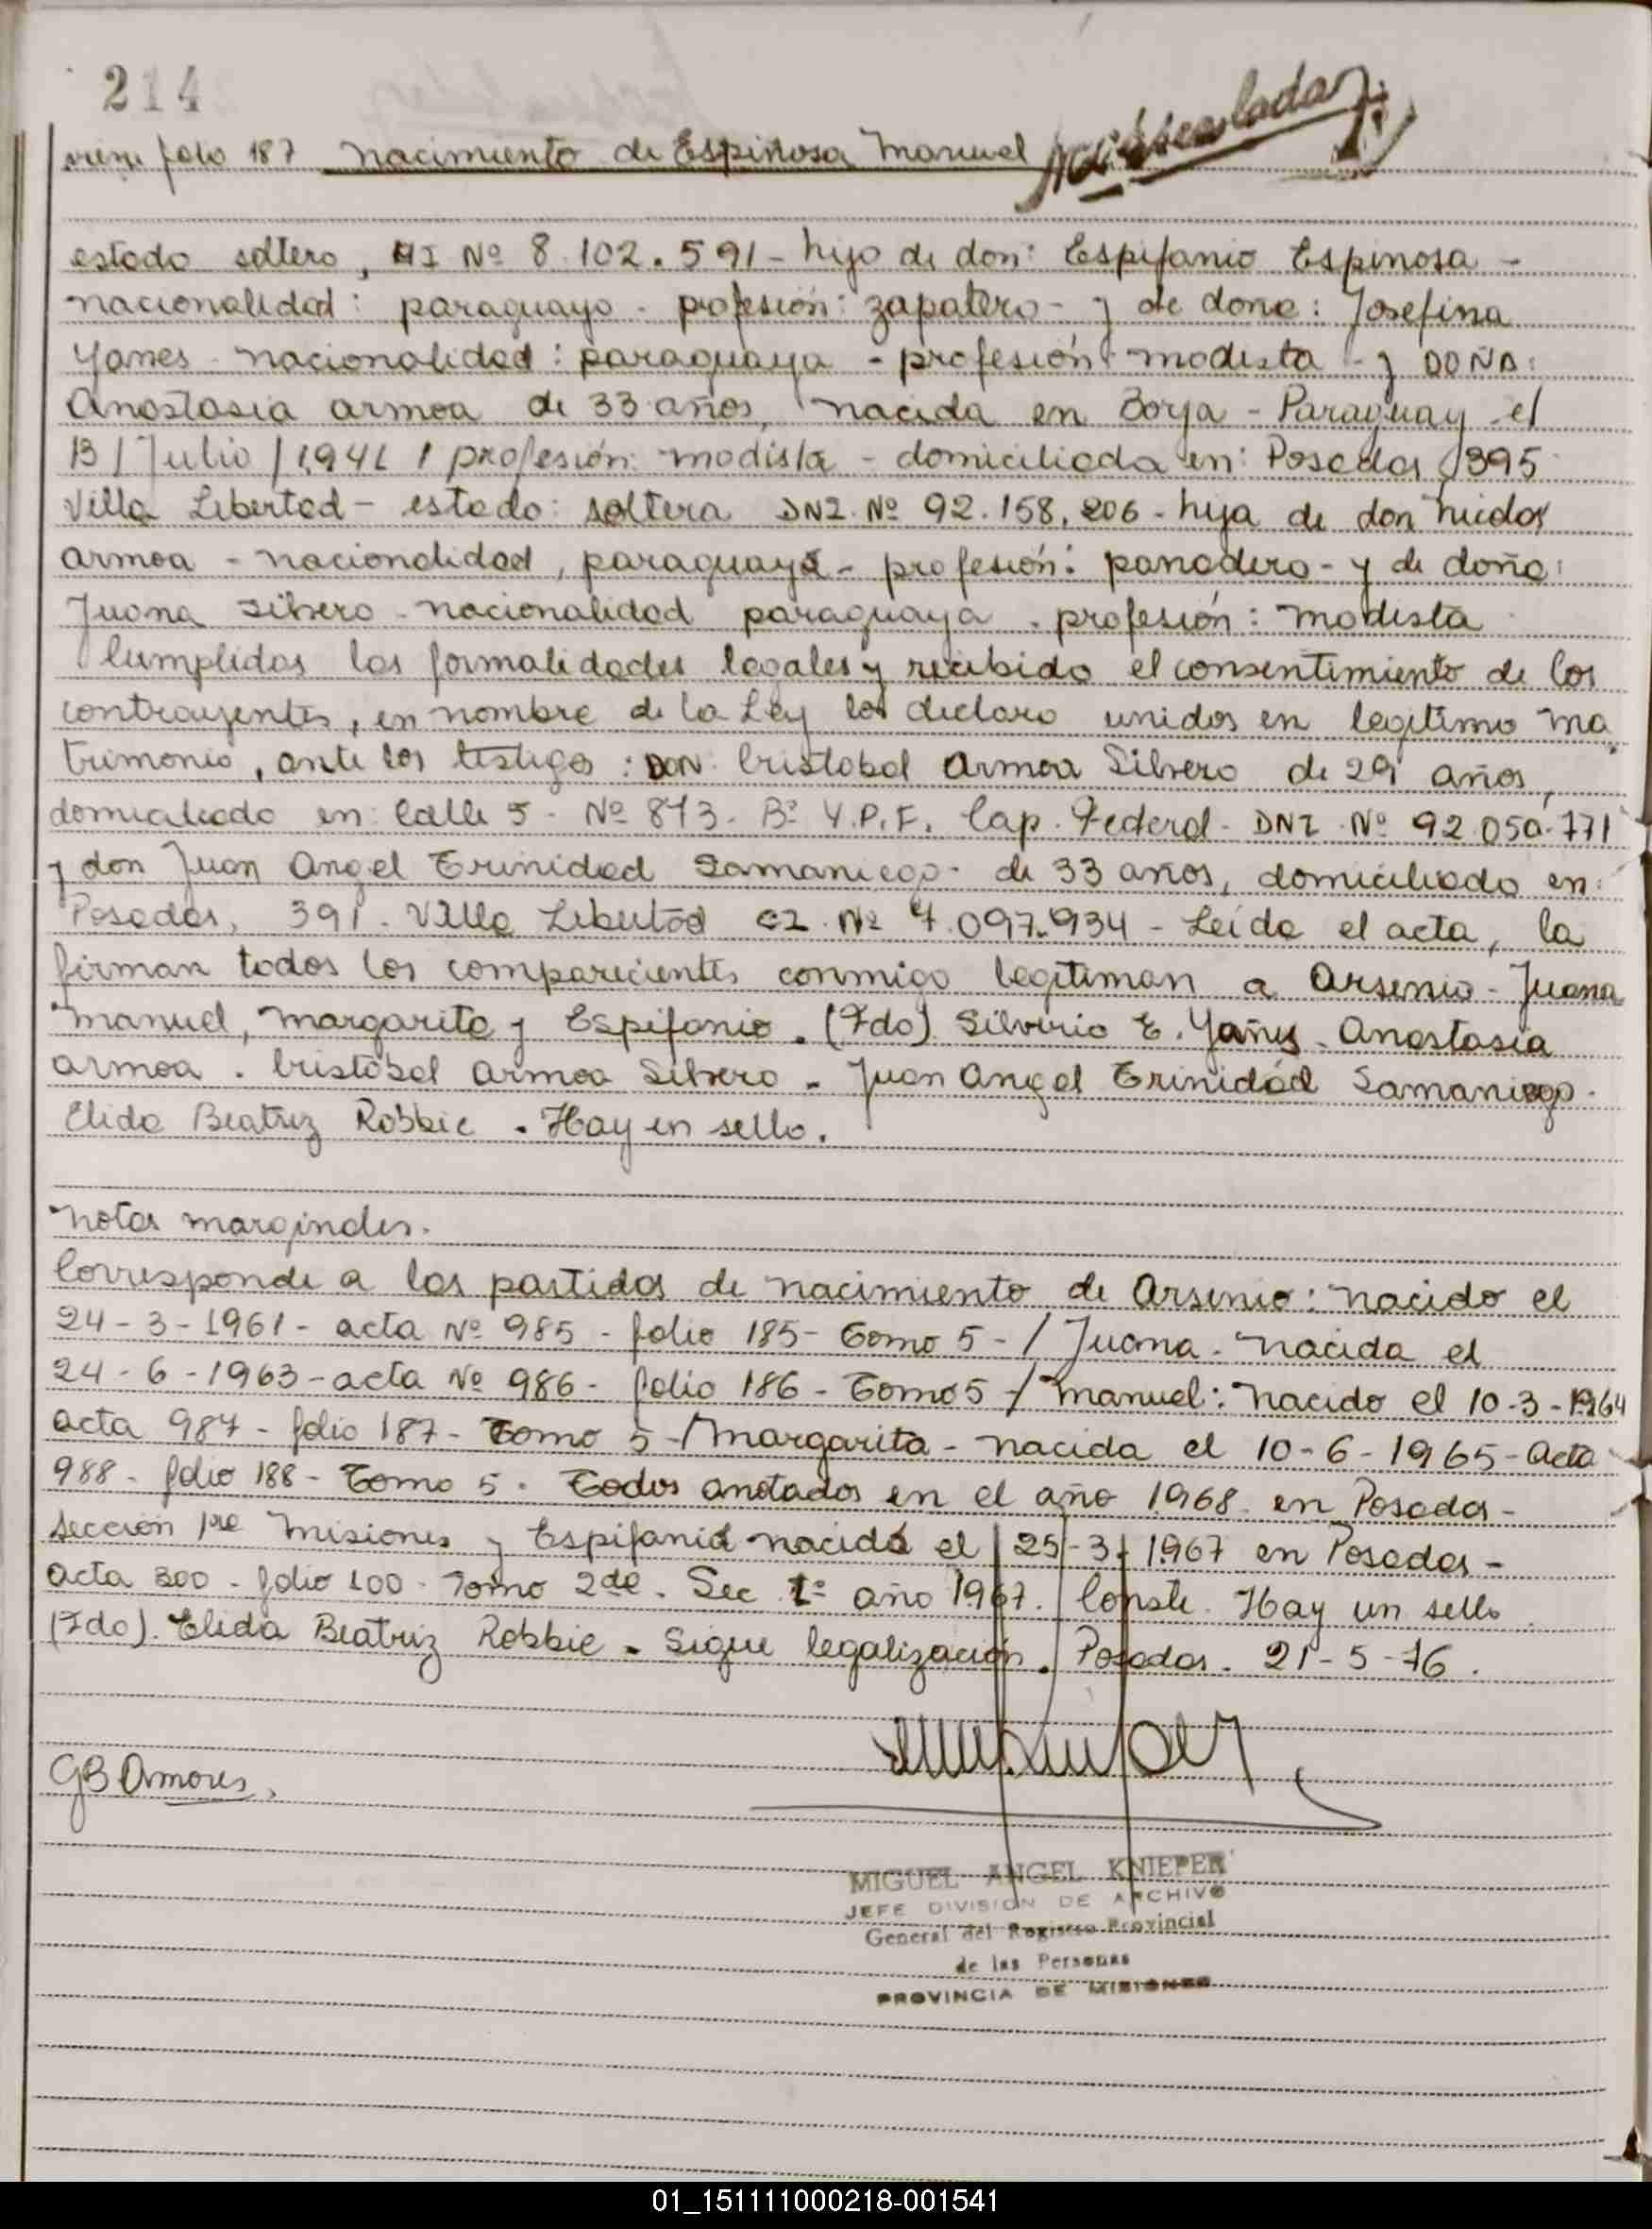 214
viene folio 187 nacimiento de Espinosa Manuel
estado soltero, MI Nº 8.102.591 - hijo de don: Espifanio Espinosa -
nacionalidad: paraguayo - profesión: zapatero - y de doña: Josefina
Yanes - nacionalidad: paraguaya - profesión: modista - y DOÑA:
Anastasia armoa de 33 años, nacida en Borja - Paraguay el
13/Julio/1941/ profesión: modista - domiciliada en: Posadas 395
Villa Libertad - estado: soltera DNI. Nº 92.158.206 - hija de don
armoa - nacionalidad, paraguaya - profesión: panadero - y de doña:
Juana Silvero - nacionalidad paraguaya - profesión: modista
Cumplidas las formalidades legales y recibido el consentimiento de los
contrayentes, en nombre de la Ley los declaro unidos en legítimo ma
trimonio, ante los testigos: DON Cristobal Armoa Silvero de 29 años,
domiciliado en: Calle 5 - Nº 873 - Bº Y.P.F. Cap. Federal - DNI Nº 92.050.771
y don Juan Angel Trinidad Samaniego - de 33 años, domiciliado en:
Posadas, 391 - Villa Libertad CI. Nº 7.097.934 - Leída el acta, la
firman todos los comparecientes conmigo legitiman a Arsenio - Juana
Manuel, Margarita y Espifanio. (Fdo) Silverio E. Yañes - Anastasia
armoa. Cristobal Armoa Silvero - Juan Angel Trinidad Samaniego -
Elida Beatriz Robbie. Hay en sello.
Notas marginales.
Corresponde a las partidas de nacimiento de Arsenio: nacido el
24-3-1961 - acta Nº 985 - folio 185 - Tomo 5 -/ Juana - nacida el
24-6-1963 - acta Nº 986 - folio 186 - Tomo 5 -/ Manuel: nacido el 10-3-1964
acta 987 - folio 187 - Tomo 5 -/ Margarita - nacida el 10-6-1965 - acta
988 - folio 188 - Tomo 5. Todos anotados en el año 1968 en Posadas -
Sección 1ra Misiones y Espifania nacida el 25-3-1967 en Posadas -
acta 300 - folio 100 - Tomo 2do. Sec 1º año 1967. Conste. Hay un sello.
(Fdo). Elida Beatriz Robbie. Sigue legalización. Posadas. 21-5-76.
GB Amores.
MIGUEL ANGEL KNIEPER
JEFE DIVISION DE ARCHIVO
General del Registro Provincial
de las Personas
PROVINCIA DE MISIONES
01_151111000218-001541